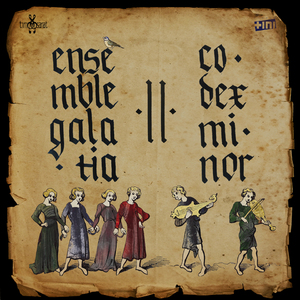 ense
mble
gala
·tia
·II·
co·
dex
mi·
nor